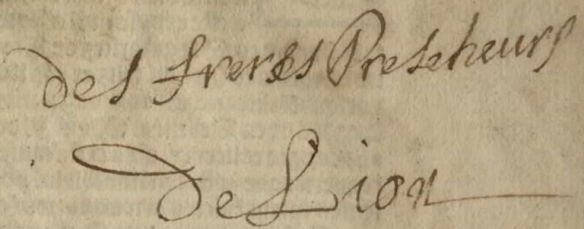 des freres Prescheurs
de Lion